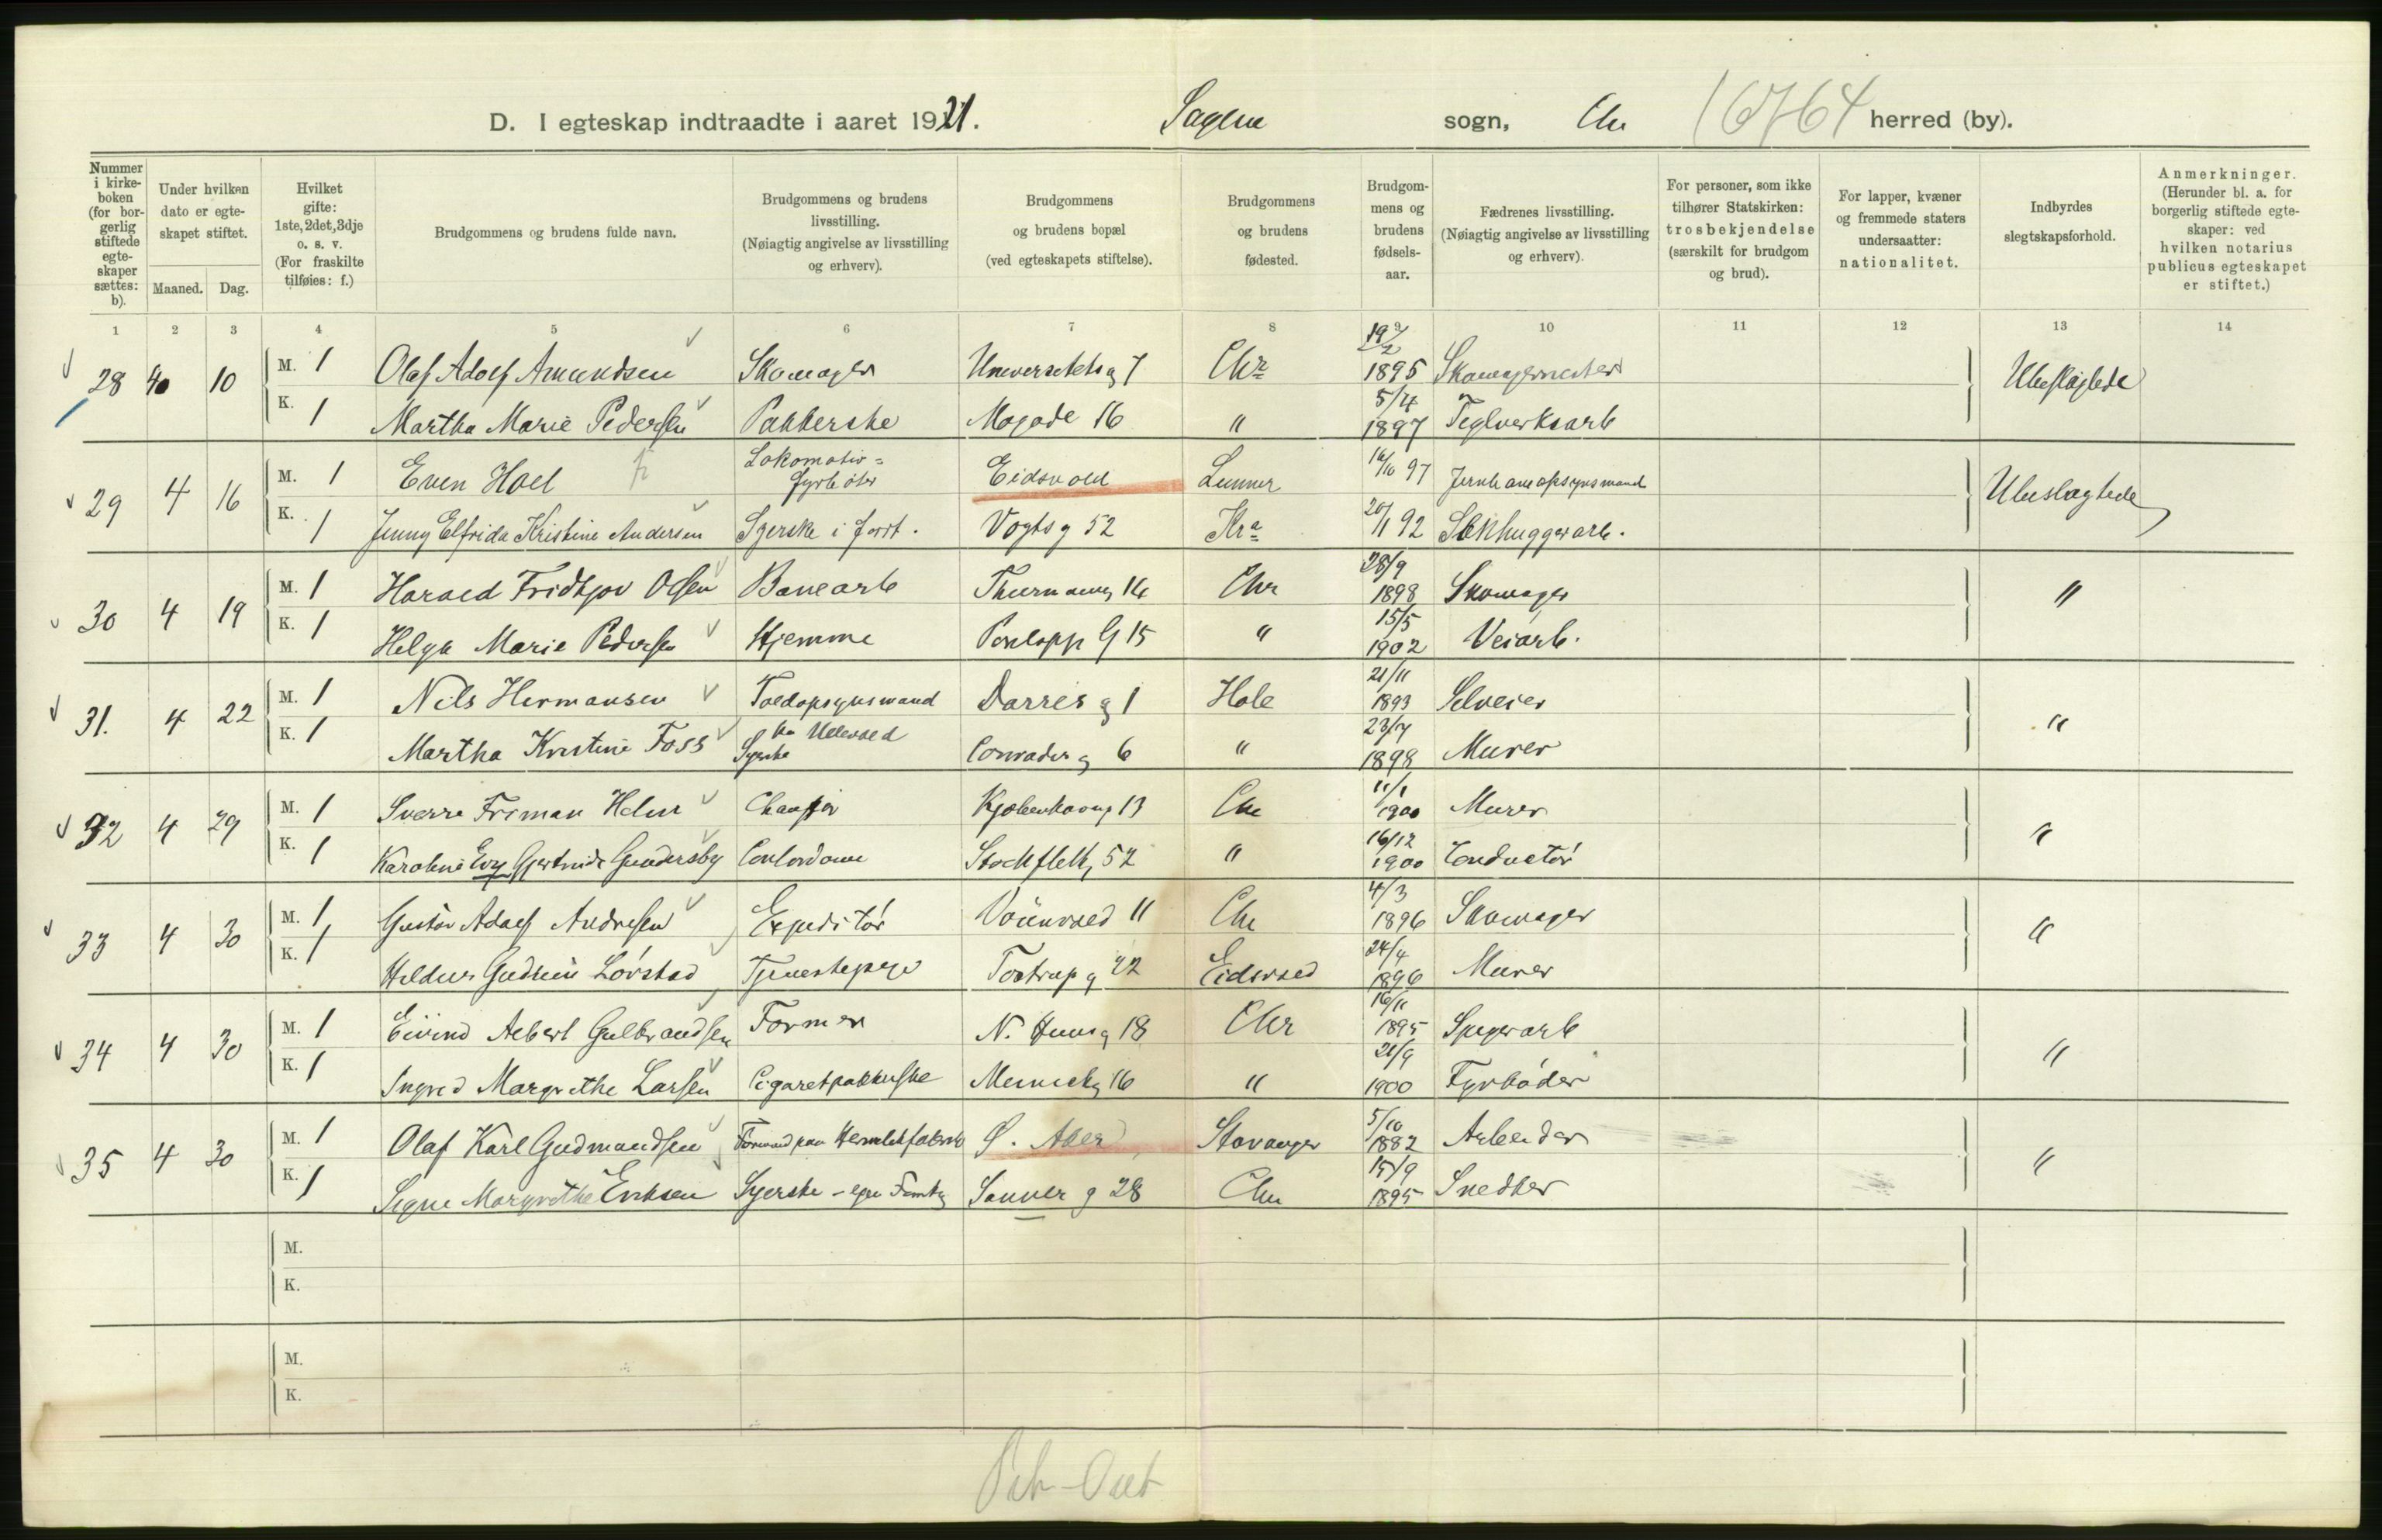 D. I egteskap indtraadte i aaret 1921. Sagene sogn, Chr 16764 herred (by).
Nummer i kirkeboken (for borgerlig stiftede egteskaper sættes: b).
Under hvilken dato er egteskapet stiftet.
Maaned. Dag.
Hvilket gifte: 1ste, 2det, 3dje o. s. v. (For fraskilte tilføies: f.)
Brudgommens og brudens fulde navn.
Brudgommens og brudens livsstilling. (Nøiagtig angivelse av livsstilling og erhverv).
Brudgommens og brudens bopæl (ved egteskapets stiftelse).
Brudgommens og brudens fødested.
Brudgommens og brudens fødselsaar.
Fædrenes livsstilling. (Nøiagtig angivelse av livsstilling og erhverv).
For personer, som ikke tilhører Statskirken: trosbekjendelse (særskilt for brudgom og brud).
For lapper, kvæner og fremmede staters undersaatter: nationalitet.
Indbyrdes slegtskapsforhold.
Anmerkninger. (Herunder bl. a. for borgerlig stiftede egteskaper: ved hvilken notarius publicus egteskapet er stiftet.)
1 2 3 4 5 6 7 8 10 11 12 13 14
28 4 10 M. 1 Olaf Adolf Amundsen Skomager Universitetsg 7 Chr 1895 Skomagermester Ubeslægtede
K. 1 Martha Marie Pedersen Pakkerske Mogade 16 " 5/4 1897 Teglverksarb
29 4 16 M. 1 Even Hoel Lokomotiv-fyrbøter Eidsvold Lunner 16/10 97 Jernbaneopsynsmand Ubeslægtede
K. 1 Jenny Elfrida Kristine Andersen Syerske i forr. Vogts g 52 Kra 20/1 92 Stenhuggerarb.
30 4 19 M. 1 Harald Fridtjov Olsen Banearb 16 Chr 28/9 1898 Skomager "
K. 1 Helga Marie Pedersen Hjemme G 15 " 15/5 1902 Veiarb.
31. 4 22 M. 1 Nils Hermansen Toldopsynsmand Darres g 1 Hole 21/11 1893 Selveier "
K. 1 Martha Kristine Foss Syerske Conradis g 6 " 23/7 1898 Murer
32 4 29 M. 1 Sverre Friman Chauffør Kjøbenhavng 13 Chr 11/1 1900 Murer "
K. 1 Karoline Evy Gjertrude Gundersby Contordame Stockfletg 52 " 16/12 1900 Conductør
33 4 30 M. 1 Gustav Adolf Andresen Expeditør Voienvold 11 Chr 4/3 1896 Skomager "
K. 1 Hildur Gudrun Lovstad Tjenestepige Tostrup g 22 Eidsvold 24/4 1896 Murer
34 4 30 M. 1 Eivind Albert Gulbrandsen Former N. g 18 Chr 16/11 1895 Spigerarb "
K. 1 Ingrid Margrethe Larsen Cigaretpakkerske 16 " 21/9 1900 Fyrbøder
35 4 30 M. 1 Olaf Karl Gudmundsen Formand paa Hermetikfabrik Ø. Aker Stavanger 5/10 1882 Arbeider "
K. 1 Signe Margrethe Eriksen Syerske - egen Sanner g 28 Chr 15/9 1895 Snedker
M.
K.
M.
K.